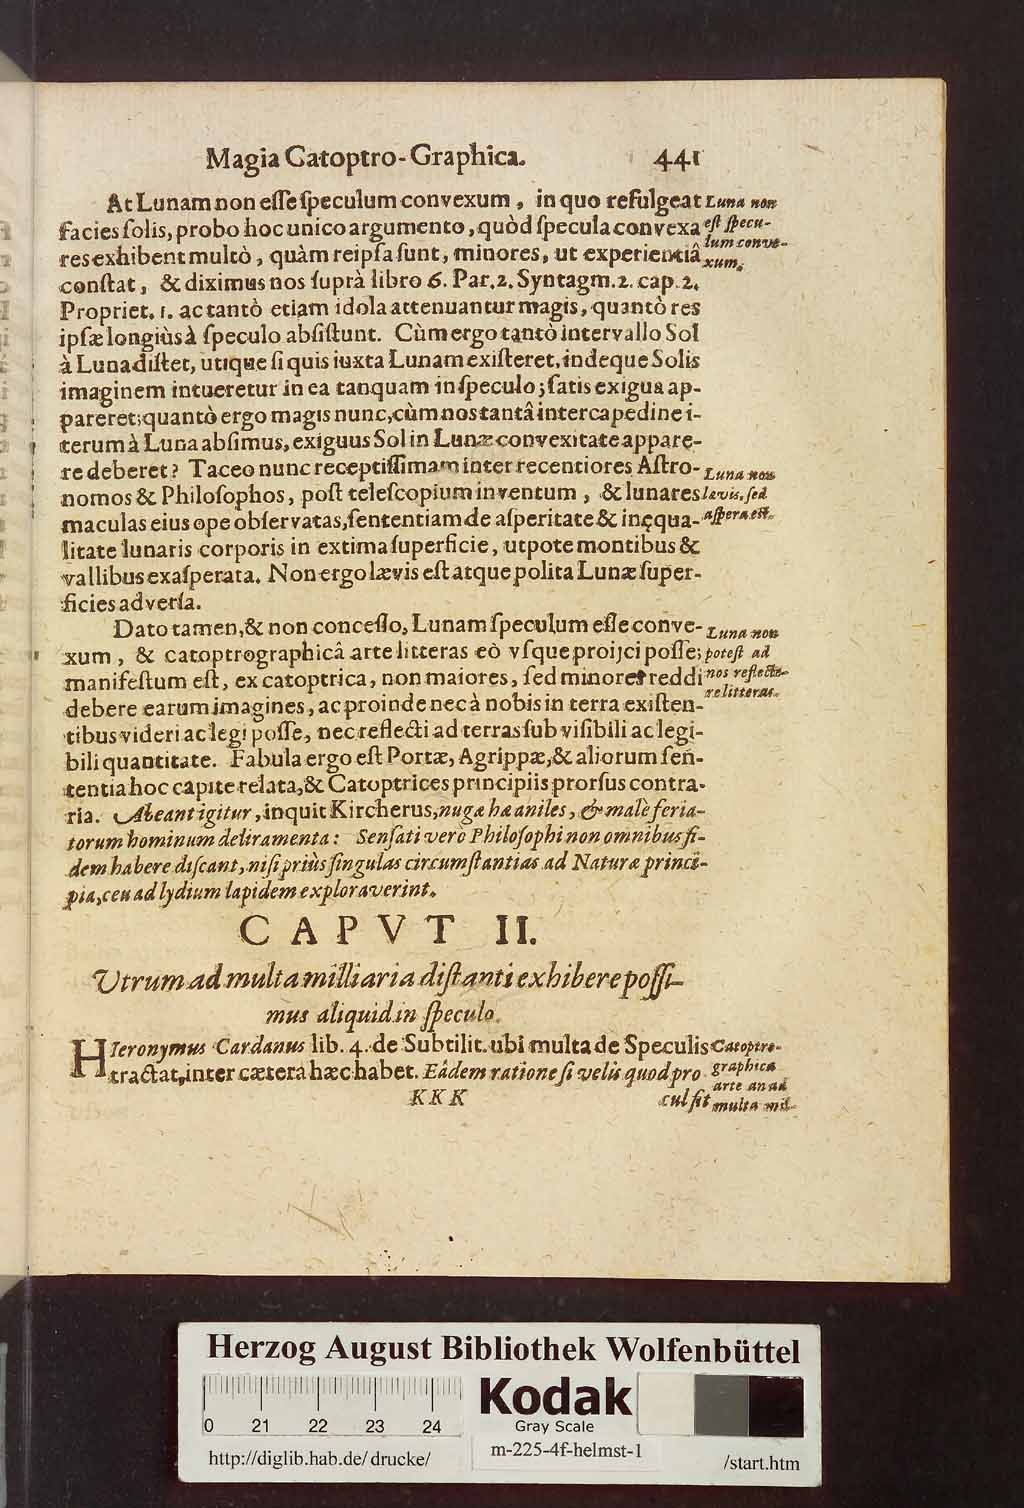 Magia Catoptro-Graphica. 441
At Lunam non eſſe ſpeculum convexum, in quo refulgeat
facies ſolis, probo hoc unico argumento, quòd ſpecula convexa
res exhibent multò, quàm reipſa ſunt, minores, ut experientiâ
conſtat, & diximus nos ſuprà libro 6. Par. 2. Syntagm. 2. cap. 2.
Propriet. 1. ac tantò etiam idola attenuantur magis, quantò res
ipſæ longiùs à ſpeculo abſiſtunt. Cùm ergo tantò intervallo Sol
à Luna diſtet, utique ſi quis iuxta Lunam exiſteret, indeque Solis
imaginem intueretur in ea tanquam in ſpeculo; ſatis exigua ap-
pareret; quantò ergo magis nunc, cùm nos tantâ intercapedine i-
terum à Luna abſimus, exiguus Sol in Lunæ convexitate appare-
re deberet? Taceo nunc receptiſſimam inter recentiores Aſtro-
nomos & Philoſophos, poſt teleſcopium inventum, & lunares
maculas eius ope obſervatas, ſententiam de aſperitate & inęqua-
litate lunaris corporis in extima ſuperficie, utpote montibus &
vallibus exaſperata. Non ergo lævis eſt atque polita Lunæ ſuper-
ficies adverſa.
Dato tamen, & non conceſſo, Lunam ſpeculum eſſe conve-
xum, & catoptrographicâ arte litteras eò vſque proijci poſſe;
manifeſtum eſt, ex catoptrica, non maiores, ſed minores reddi
debere earum imagines, ac proinde nec à nobis in terra exiſten-
tibus videri ac legi poſſe, nec reflecti ad terras ſub viſibili ac legi-
bili quantitate. Fabula ergo eſt Portæ, Agrippæ, & aliorum ſen-
tentia hoc capite relata, & Catoptrices principiis prorſus contra-
ria. Abeant igitur, inquit Kircherus, nugæ hæ aniles, & malè feria-
torum hominum deliramenta: Senſati verò Philoſophi non omnibus fi-
dem habere diſcant, niſi priùs ſingulas circumſtantias ad Naturæ princi-
pia, ceu ad lydium lapidem exploraverint.
Luna non
eſt ſpecu-
lum conve-
xum.
Luna non
lævis, ſed
aſpera eſt.
Luna non
poteſt ad
nos reflecte-
re litteras.
CAPVT II.
Utrum ad multa milliaria diſtanti exhibere poſſi-
mus aliquid in ſpeculo.
HIeronymus Cardanus lib. 4. de Subtilit. ubi multa de Speculis
tractat, inter cætera hæc habet. Eâdem ratione ſi velis quod pro-
Catoptro-
graphica
arte an ad
multa mil-
KKK cul ſit
Herzog August Bibliothek Wolfenbüttel
0 21 22 23 24
Kodak
Gray Scale
http://diglib.hab.de/drucke/ m-225-4f-helmst-1 /start.htm